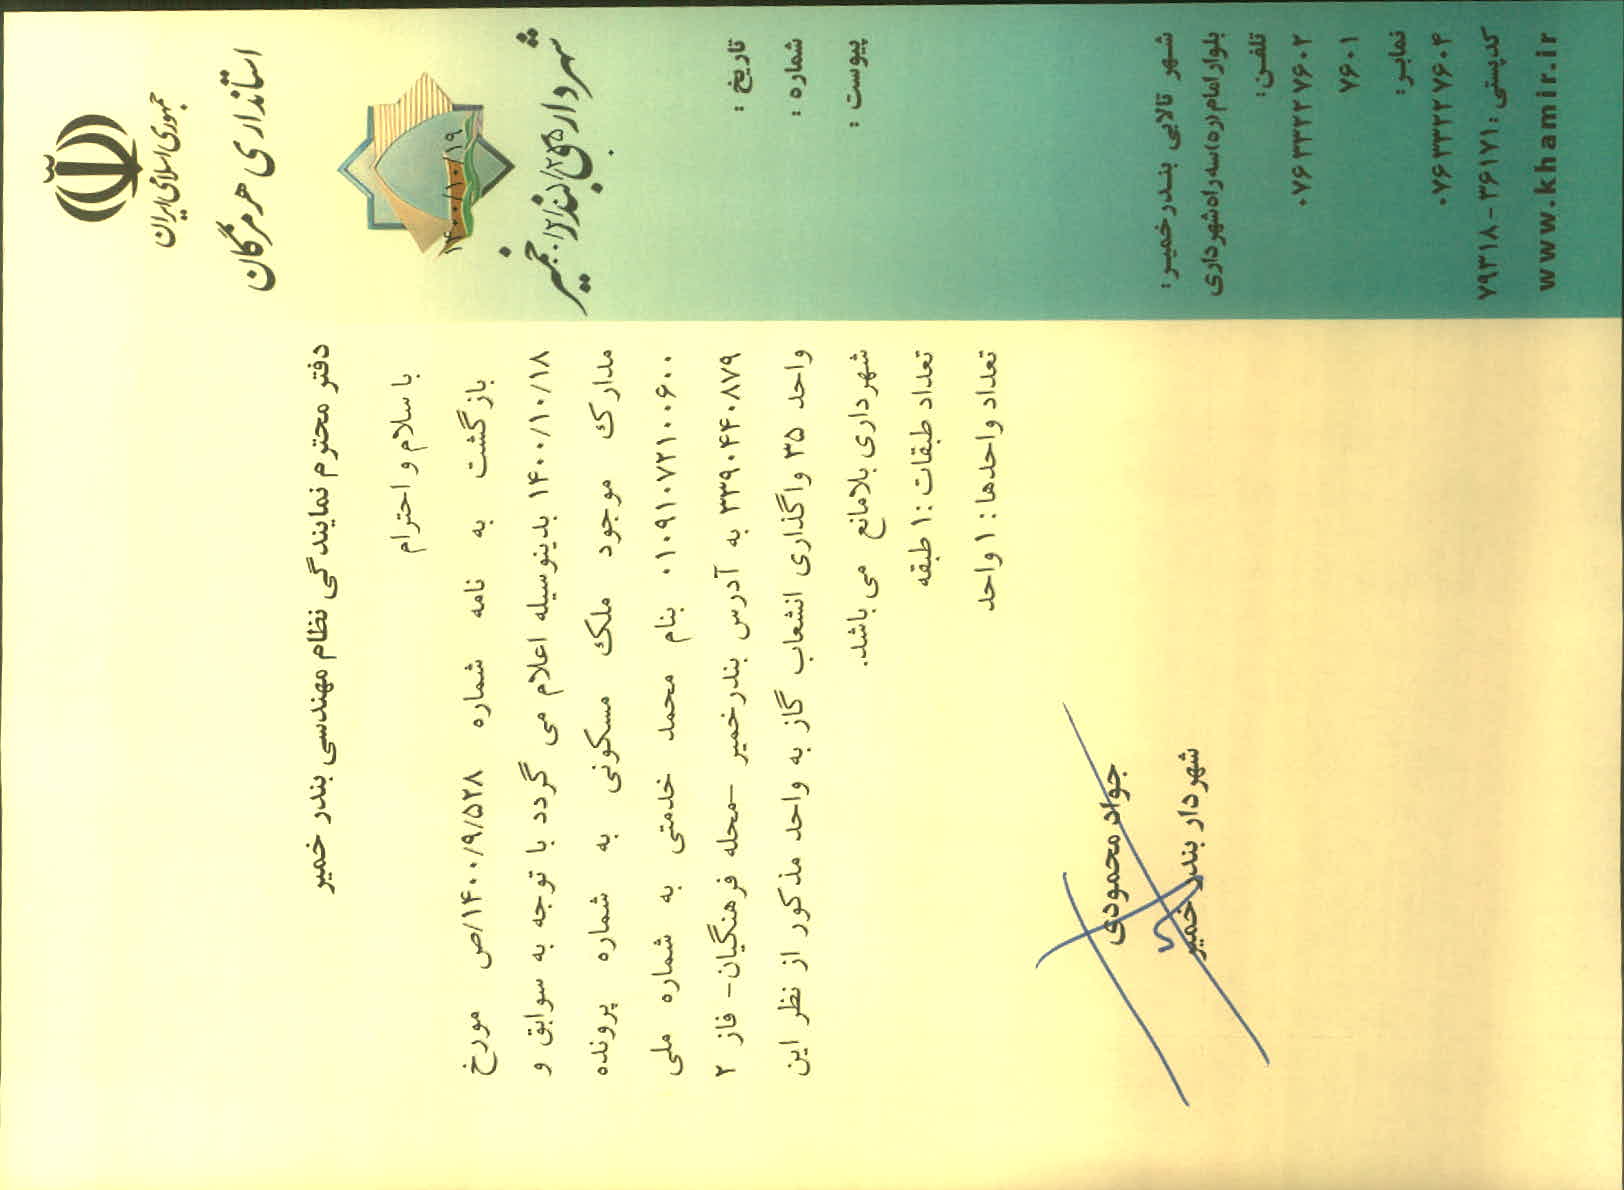 جمهوری اسلامی ایران
استانداری هرمزگان
شهرداری بندر خمیر
۱۴۰۰/۱۰/۱۹
تاریخ :
شماره :
پیوست :
دفتر محترم نمایندگی نظام مهندسی بندر خمیر
با سلام و احترام
بازگشت به نامه شماره ۱۴۰۰/۹/۵۲۸/ص مورخ
۱۴۰۰/۱۰/۱۸ بدینوسیله اعلام می گردد با توجه به سوابق و
مدارک موجود ملک مسکونی به شماره پرونده
۰۱۰۹۱۰۷۲۱۰۰۶۰۰ بنام محمد خدمتی به شماره ملی
۳۳۹۰۴۴۰۸۷۹ به آدرس بندرخمیر -محله فرهنگیان- فاز ۲
واحد ۳۵ واگذاری انشعاب گاز به واحد مذکور از نظر این
شهرداری بلامانع می باشد.
تعداد طبقات :۱ طبقه
تعداد واحدها : ۱ واحد
جواد محمودی
شهردار بندر خمیر
شهر تالابی بندرخمیر:
بلوار امام(ره)سه راه شهرداری
تلفن:
۰۷۶۳۳۲۲۷۶۰۲
۷۶۰۱
نمابر:
۰۷۶۳۳۲۲۷۶۰۴
کدپستی:۳۶۱۷۱-۷۹۳۱۸
www.khamir.ir